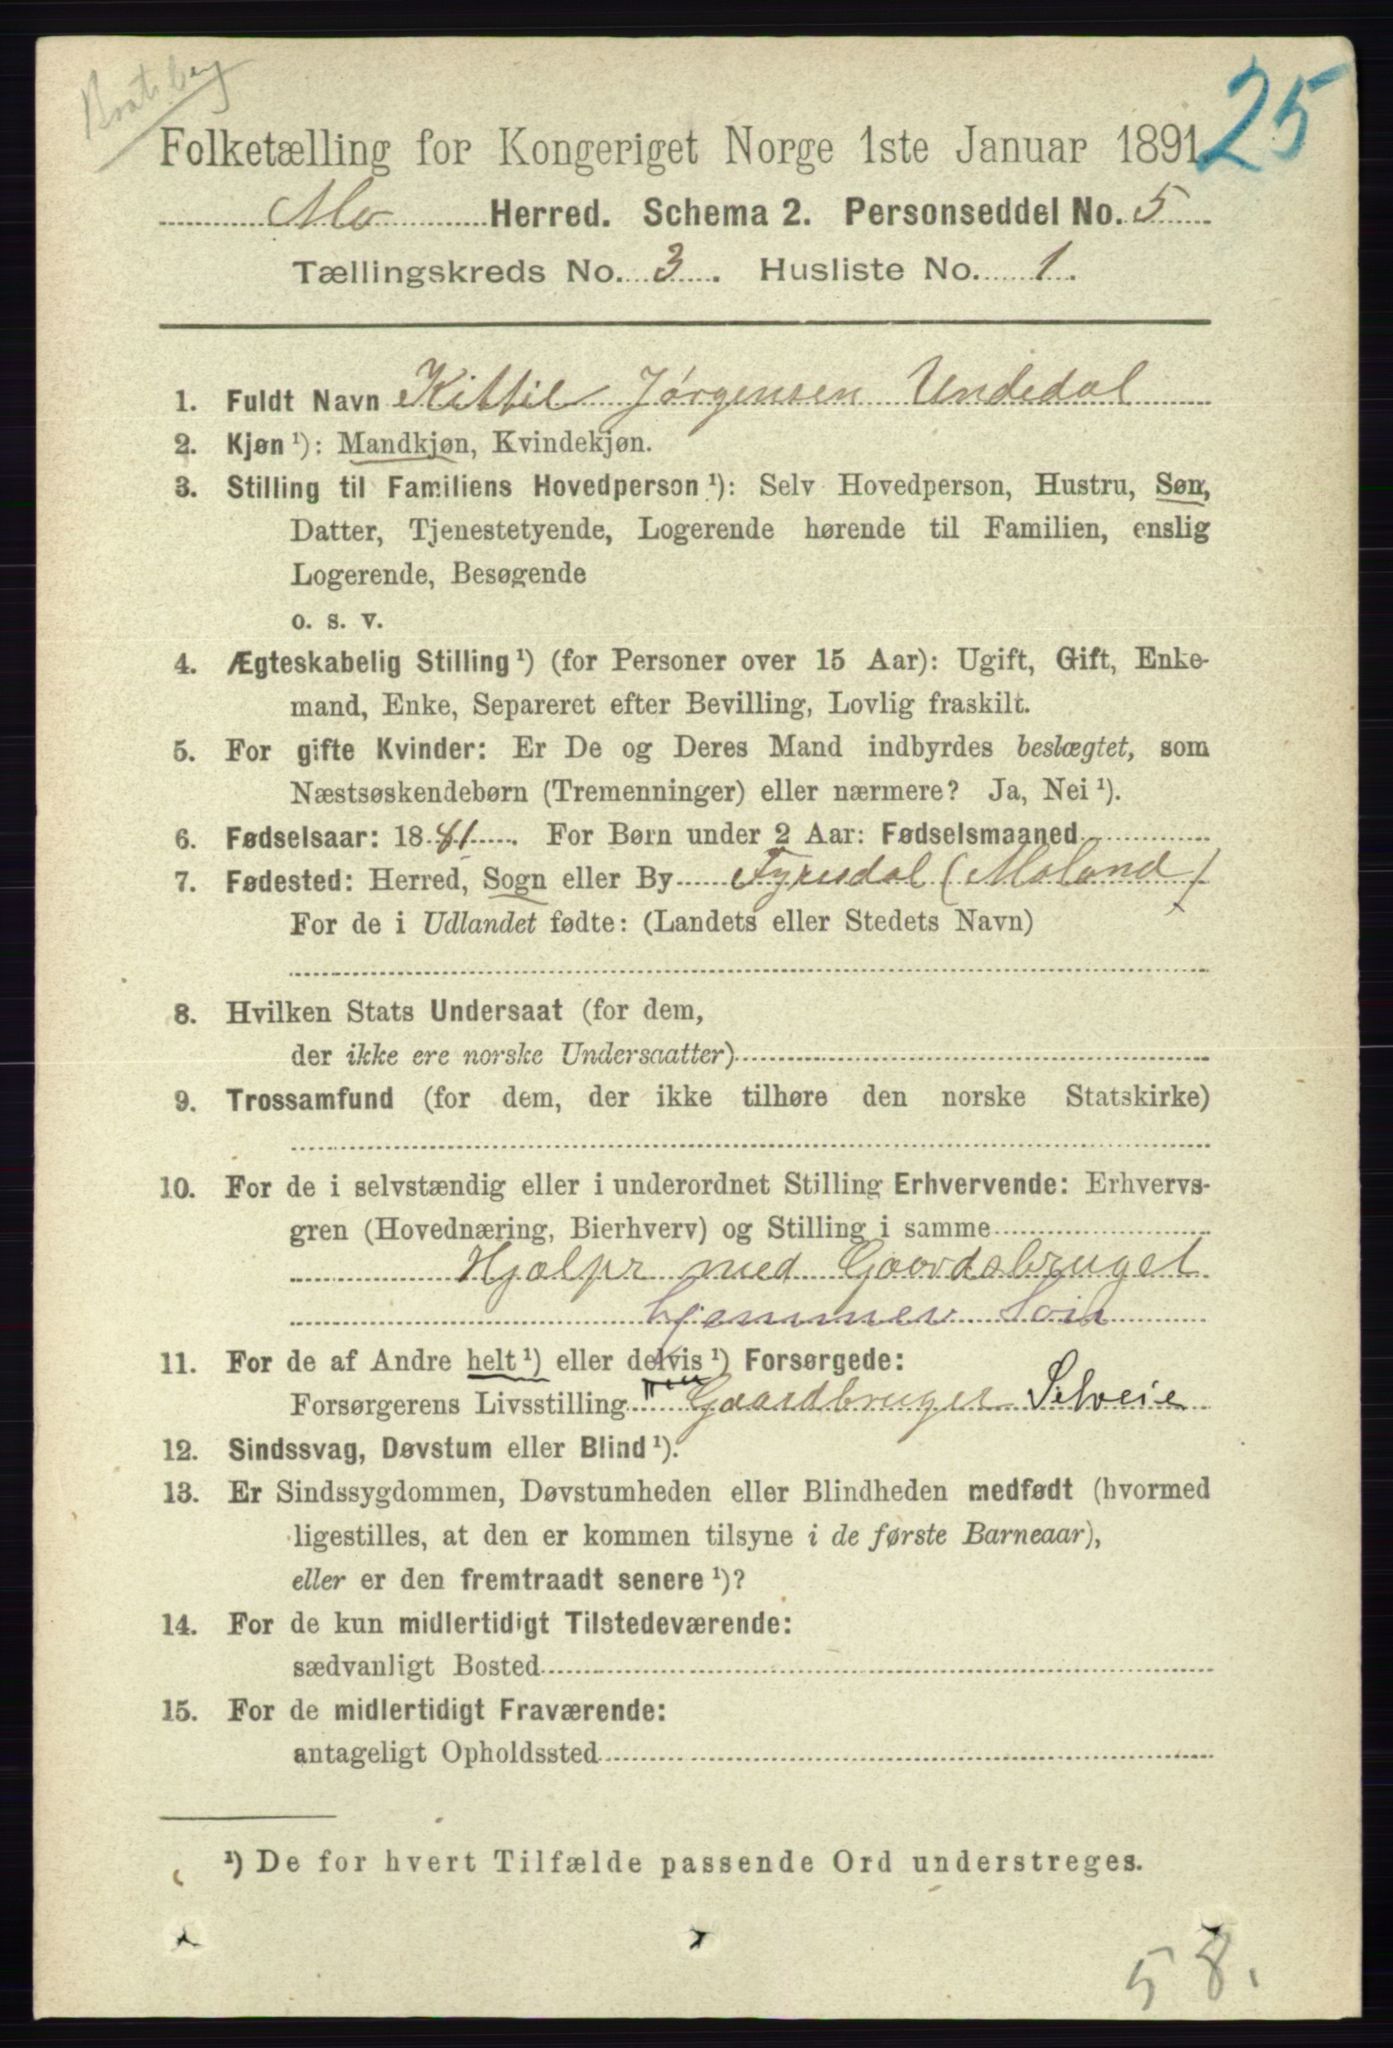 Bratsberg
25
Folketælling for Kongeriget Norge 1ste Januar 1891.
Mo Herred. Schema 2. Personseddel No. 5
Tællingskreds No. 3. Husliste No. 1.
1. Fuldt Navn Kittil Jørgensen Undedal
2. Kjøn ¹): Mandkjøn, Kvindekjøn.
3. Stilling til Familiens Hovedperson ¹): Selv Hovedperson, Hustru, Søn,
Datter, Tjenestetyende, Logerende hørende til Familien, enslig
Logerende, Besøgende
o. s. v.
4. Ægteskabelig Stilling ¹) (for Personer over 15 Aar): Ugift, Gift, Enke-
mand, Enke, Separeret efter Bevilling, Lovlig fraskilt.
5. For gifte Kvinder: Er De og Deres Mand indbyrdes beslægtet, som
Næstsøskendebørn (Tremenninger) eller nærmere? Ja, Nei ¹).
6. Fødselsaar: 1881. For Børn under 2 Aar: Fødselsmaaned
7. Fødested: Herred, Sogn eller By Fyresdal (Moland)
For de i Udlandet fødte: (Landets eller Stedets Navn)
8. Hvilken Stats Undersaat (for dem,
der ikke ere norske Undersaatter)
9. Trossamfund (for dem, der ikke tilhøre den norske Statskirke)
10. For de i selvstændig eller i underordnet Stilling Erhvervende: Erhvervs-
gren (Hovednæring, Bierhverv) og Stilling i samme
Hjælpr med Gaardsbruget
hjemmev. Søn
11. For de af Andre helt ¹) eller delvis ¹) Forsørgede:
Forsørgerens Livsstilling Gaardbruger Selveie
12. Sindssvag, Døvstum eller Blind ¹).
13. Er Sindssygdommen, Døvstumheden eller Blindheden medfødt (hvormed
ligestilles, at den er kommen tilsyne i de første Barneaar),
eller er den fremtraadt senere ¹)?
14. For de kun midlertidigt Tilstedeværende:
sædvanligt Bosted
15. For de midlertidigt Fraværende:
antageligt Opholdssted
¹) De for hvert Tilfælde passende Ord understreges.
58.